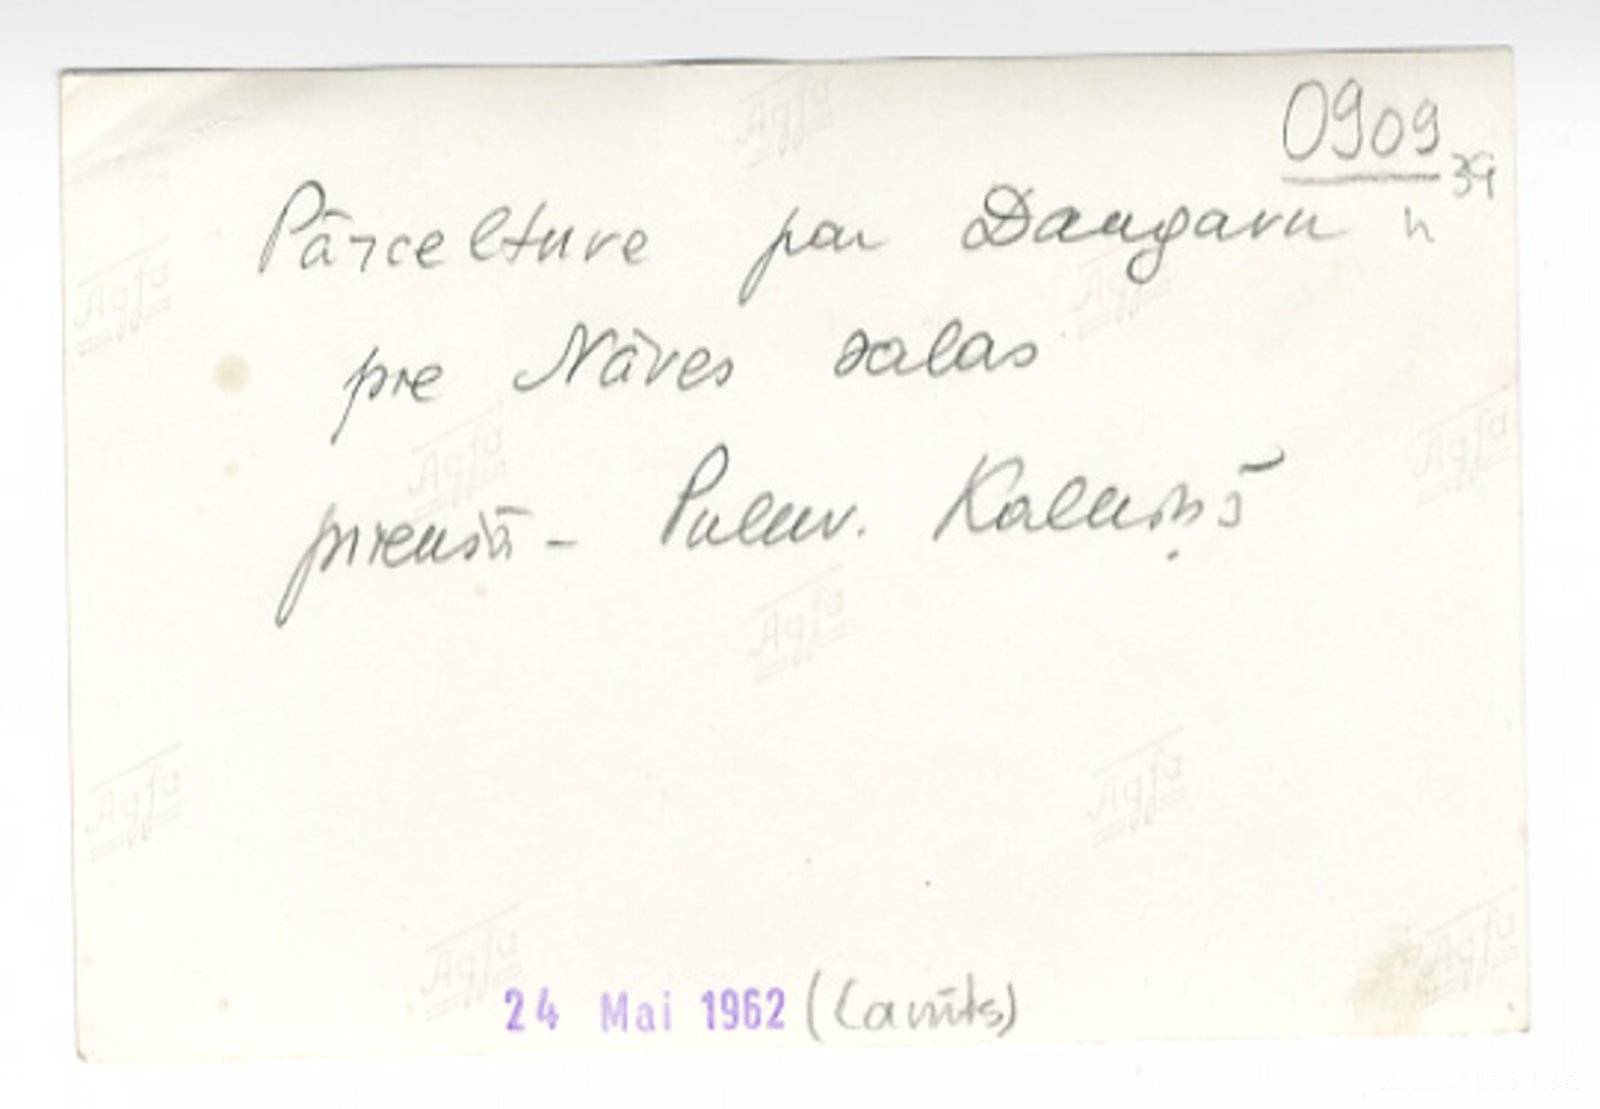 0909
39
Pārceltuve par Daugavu
pre Nāves salas
priekšā - Pulkv. Kalniņš
24 Mai 1962